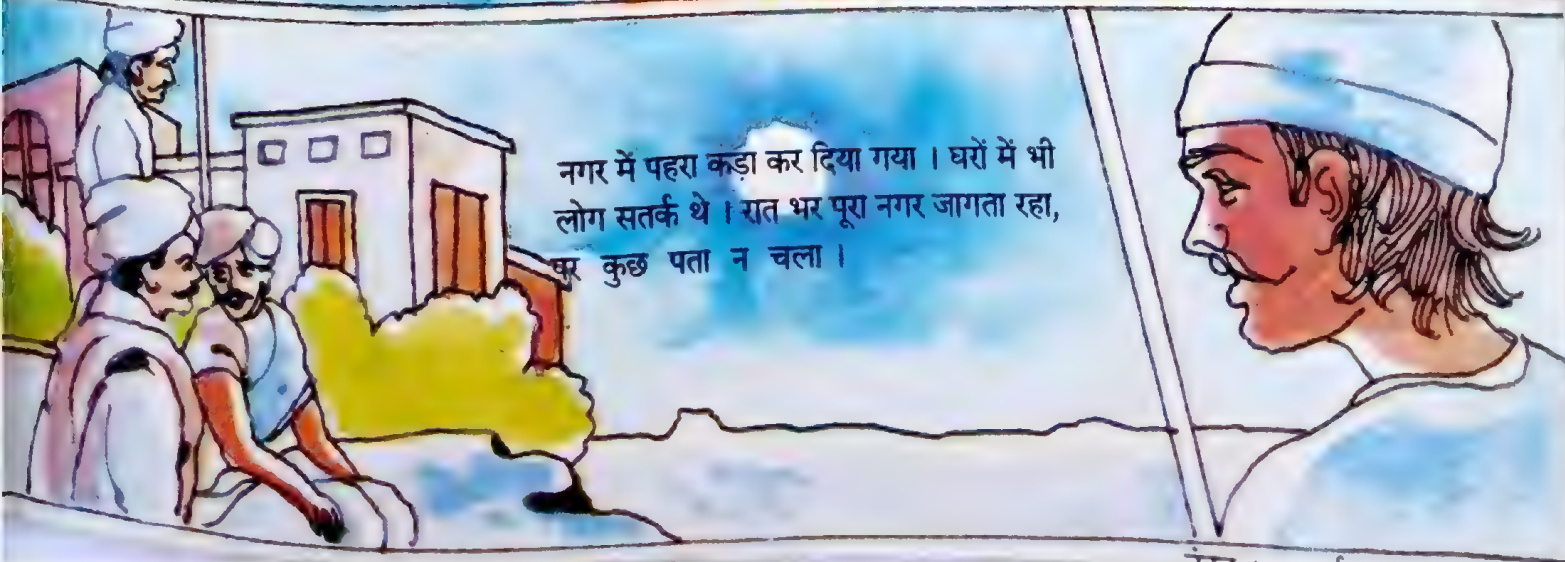 नगर में पहरा कड़ा कर दिया गया । घरों में भी
लोग सतर्क थे । रात भर पूरा नगर जागता रहा,
पर कुछ पता न चला ।